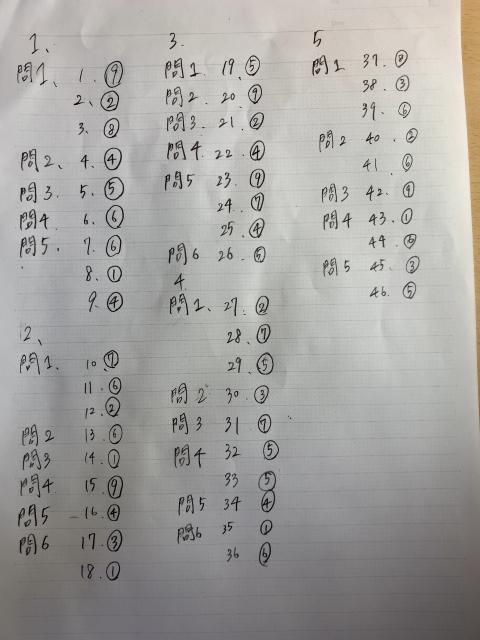 1、
問1、 1. ⑨
2、 ②
3、 ⑧
問2、 4. ④
問3、 5. ⑤
問4 6. ⑥
問5、 7. ⑥
8. ①
9. ④
2、
問1、 10. ⑦
11. ⑥
12. ②
問2 13. ⑥
問3 14. ①
問4 15. ⑨
問5 16. ④
問6 17. ③
18. ①
3.
問1 19. ⑤
問2. 20. ⑨
問3. 21. ②
問4. 22. ④
問5 23. ⑨
24. ⑦
25. ④
問6 26. ⑤
4
問1、 27. ②
28. ⑦
29. ⑤
問2 30. ③
問3 31 ⑦
問4 32 ⑤
33 ⑤
問5 34 ④
問6 35 ①
36 ⑥
5
問1 37.
38. ③
39. ⑥
問2 40.
41. ⑥
問3 42.
問4 43. ①
44.
問5 45. ③
46. ⑤